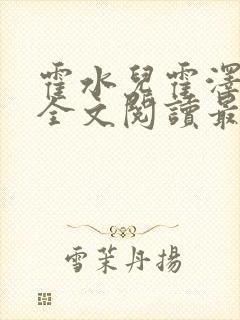 霍水兒霍澤
全文閱讀最
雪茉丹揚